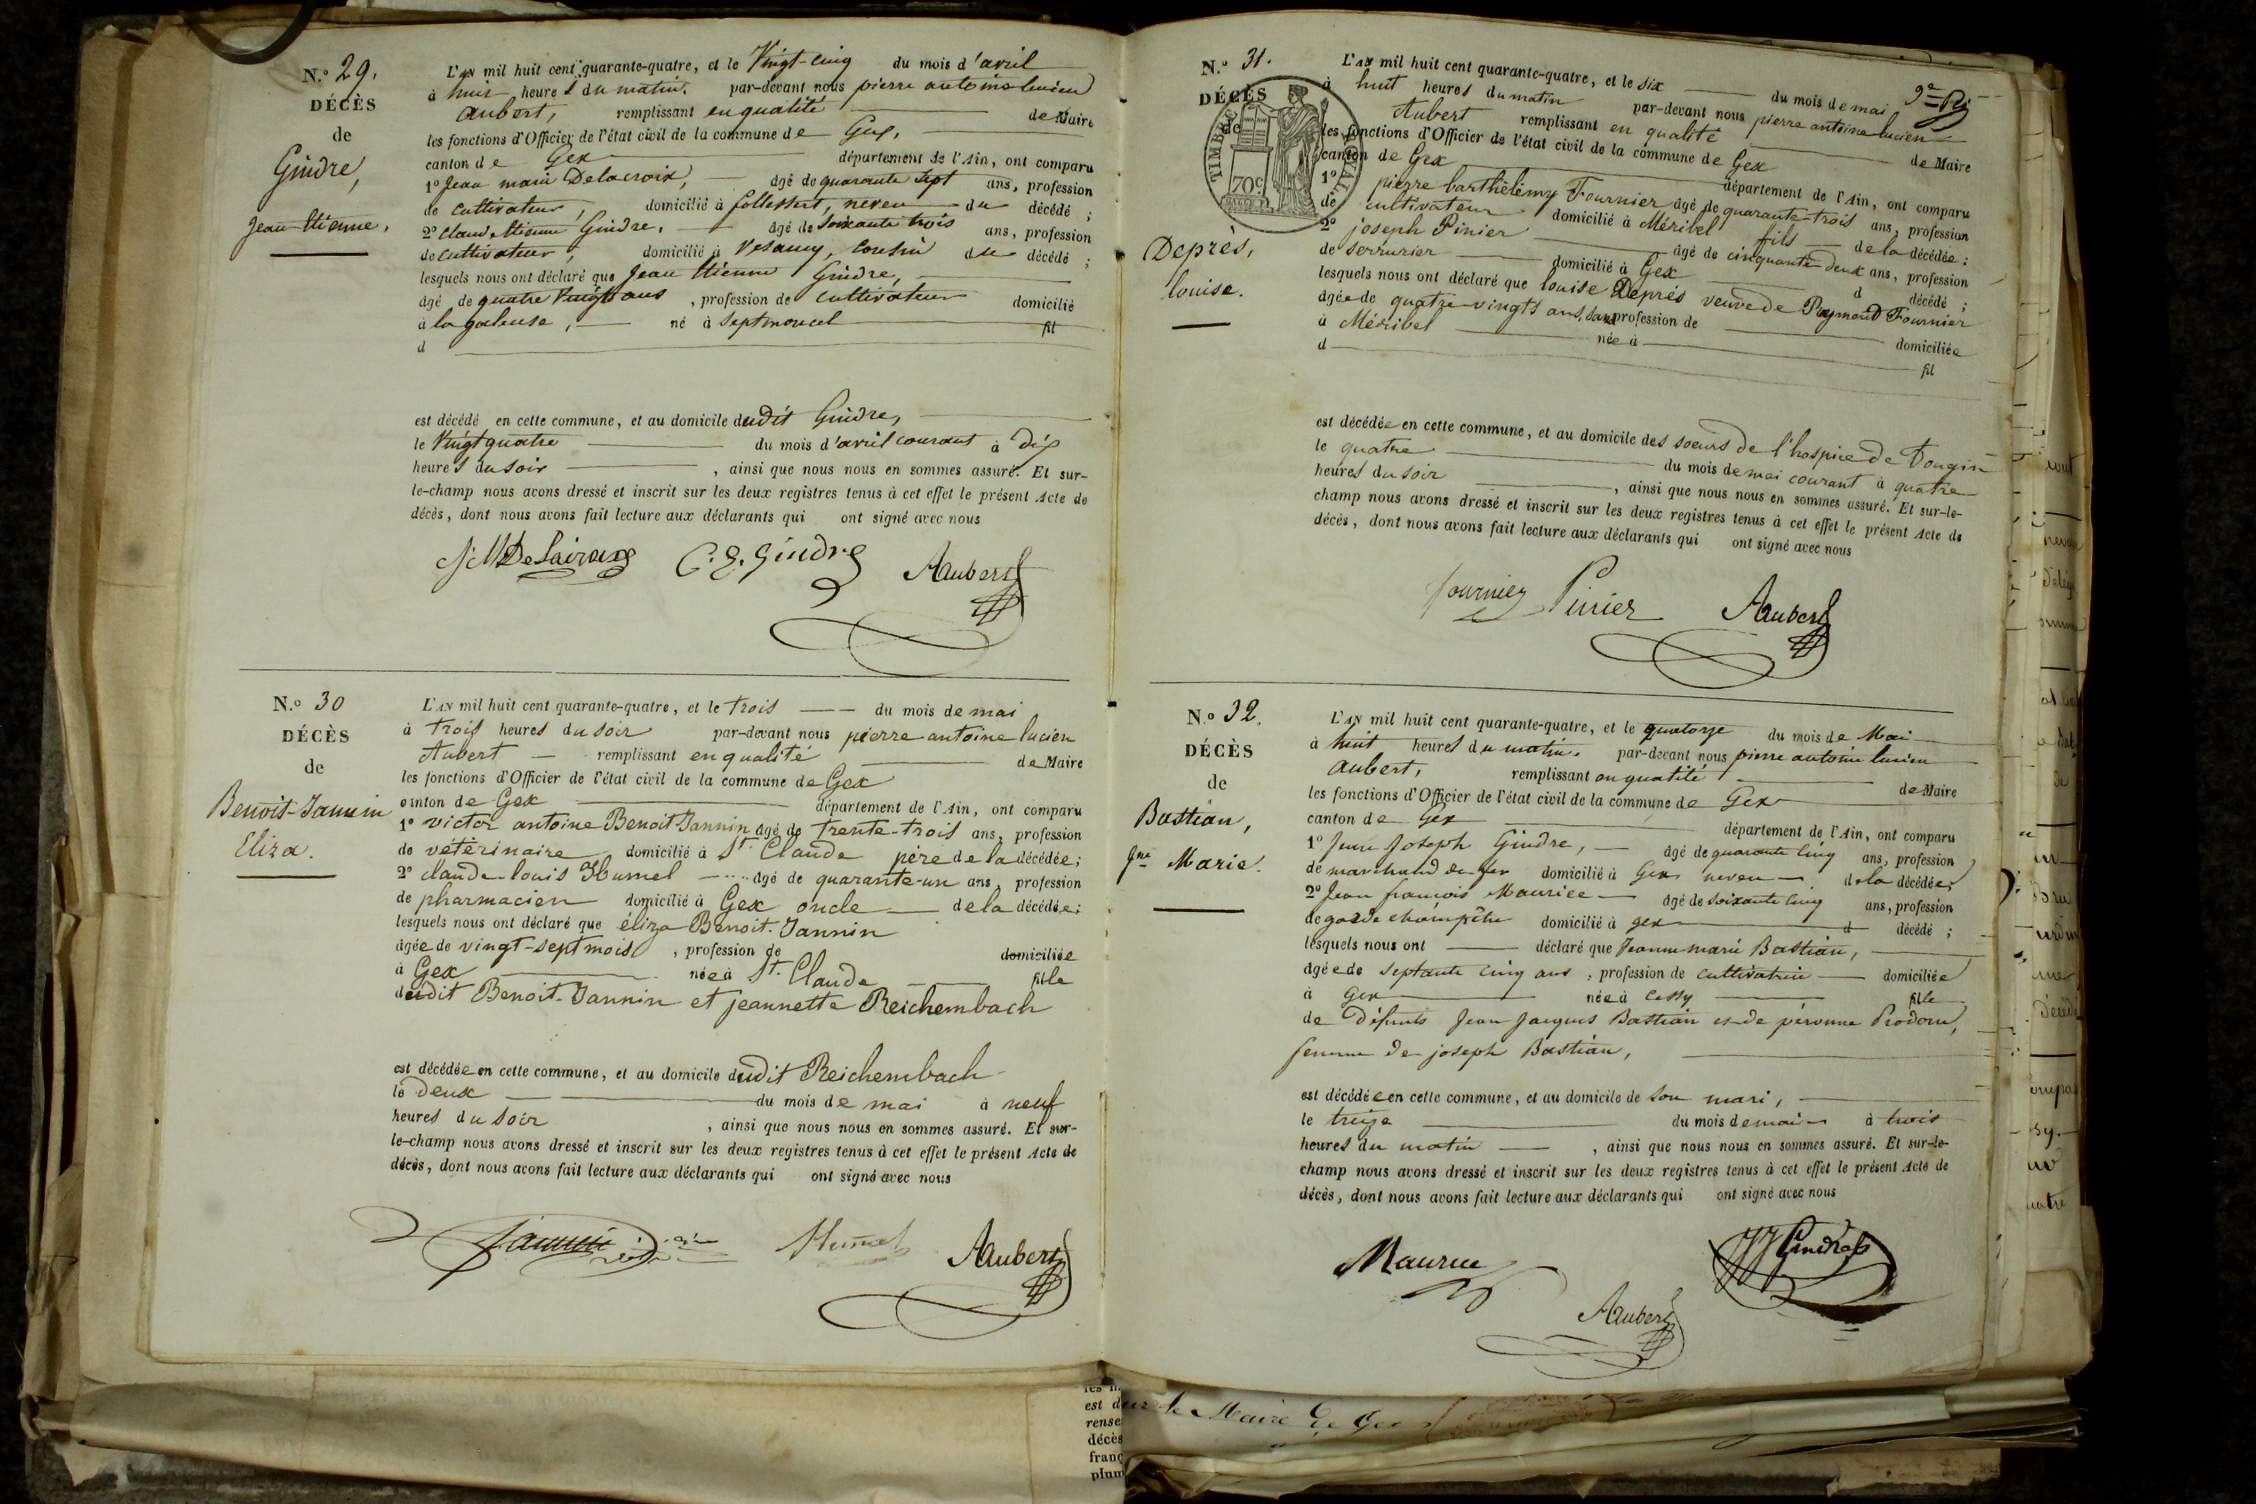 N.° 29.
DÉCÈS
de
Gindre,
Jean-Etienne.
L'AN mil huit cent quarante-quatre, et le Vingt-cinq du mois d'avril
à huit heures du matin. par-devant nous pierre antoine lucien
Aubert, remplissant en qualité de Maire
les fonctions d'Officier de l'état civil de la commune de Gex,
canton de Gex département de l'Ain, ont comparu
1° Jean marie Delacroix, âgé de quarante sept ans, profession
de cultivateur, domicilié à, neveu du décédé ;
2° Claude Etienne Gindre, âgé de soixante trois ans, profession
de cultivateur, domicilié à Vesancy, cousin du décédé ;
lesquels nous ont déclaré que Jean Etienne Gindre,
âgé de quatre Vingts ans, profession de cultivateur domicilié
à la né à septmoncel fil
d
est décédé en cette commune, et au domicile dudit Gindre,
le Vingt quatre du mois d'avril courant à dix
heures du soir, ainsi que nous nous en sommes assuré. Et sur-
le-champ nous avons dressé et inscrit sur les deux registres tenus à cet effet le présent Acte de
décès, dont nous avons fait lecture aux déclarants qui ont signé avec nous
C. E. Gindre Aubert
N.° 30
DÉCÈS
de
Benoit-Jannin
Eliza.
L'AN mil huit cent quarante-quatre, et le trois du mois de mai
à trois heures du soir par-devant nous pierre antoine lucien
Aubert remplissant en qualité de Maire
les fonctions d'Officier de l'état civil de la commune de Gex
canton de Gex département de l'Ain, ont comparu
1° victor antoine Benoit-Jannin âgé de trente-trois ans, profession
de vétérinaire domicilié à St. Claude père de la décédée ;
2° claude-louis Humel âgé de quarante-un ans, profession
de pharmacien domicilié à Gex oncle de la décédée ;
lesquels nous ont déclaré que éliza Benoit-Jannin
âgée de vingt-sept mois, profession de domiciliée
à Gex née à St. Claude fille
dudit Benoit-Jannin et jeannette Reichembach
est décédée en cette commune, et au domicile dudit Reichembach
le deux du mois de mai à neuf
heures du soir, ainsi que nous nous en sommes assuré. Et sur-
le-champ nous avons dressé et inscrit sur les deux registres tenus à cet effet le présent Acte de
décès, dont nous avons fait lecture aux déclarants qui ont signé avec nous
Jannin Humel Aubert
N.° 31.
DÉCÈS
de
TIMBRE ROYAL
70c
Deprès,
louise.
L'AN mil huit cent quarante-quatre, et le six du mois de mai
à huit heures du matin par-devant nous pierre antoine lucien
Aubert remplissant en qualité de Maire
les fonctions d'Officier de l'état civil de la commune de Gex
canton de Gex département de l'Ain, ont comparu
1° pierre barthélémy Fournier âgé de quarante-trois ans, profession
de cultivateur domicilié à Méribel fils de la décédée ;
2° joseph Pinier âgé de cinquante-deux ans, profession
de serrurier domicilié à Gex d décédé ;
lesquels nous ont déclaré que louise Deprés veuve de Raymond Fournier
âgée de quatre-vingts ans, sans profession de domiciliée
à Méribel née à fil
d
est décédée en cette commune, et au domicile des soeurs de l'hospice de Tougin
le quatre du mois de mai courant à quatre
heures du soir, ainsi que nous nous en sommes assuré. Et sur-le-
champ nous avons dressé et inscrit sur les deux registres tenus à cet effet le présent Acte de
décès, dont nous avons fait lecture aux déclarants qui ont signé avec nous
fournier Pinier Aubert
N.° 32.
DÉCÈS
de
Bastian,
Jne Marie.
L'AN mil huit cent quarante-quatre, et le quatorze du mois de Mai
à huit heures du matin. par-devant nous pierre antoine lucien
Aubert, remplissant en qualité de Maire
les fonctions d'Officier de l'état civil de la commune de Gex
canton de Gex département de l'Ain, ont comparu
1° Jean Joseph Gindre, âgé de quarante cinq ans, profession
de marchand de fer domicilié à Gex neveu de la décédée ;
2° Jean françois Maurice âgé de soixante cinq ans, profession
de garde champêtre domicilié à gex d décédé ;
lesquels nous ont déclaré que Jeanne marie Bastian,
âgée de septante cinq ans, profession de cultivatrice domiciliée
à Gex née à Cessy fille
de défunts Jean Jacques Bastian et de péronne Prodon,
femme de joseph Bastian,
est décédée en cette commune, et au domicile de son mari,
le treize du mois de mai à trois
heures du matin, ainsi que nous nous en sommes assuré. Et sur-le-
champ nous avons dressé et inscrit sur les deux registres tenus à cet effet le présent Acte de
décès, dont nous avons fait lecture aux déclarants qui ont signé avec nous
Maurice JJ Gindre
Aubert